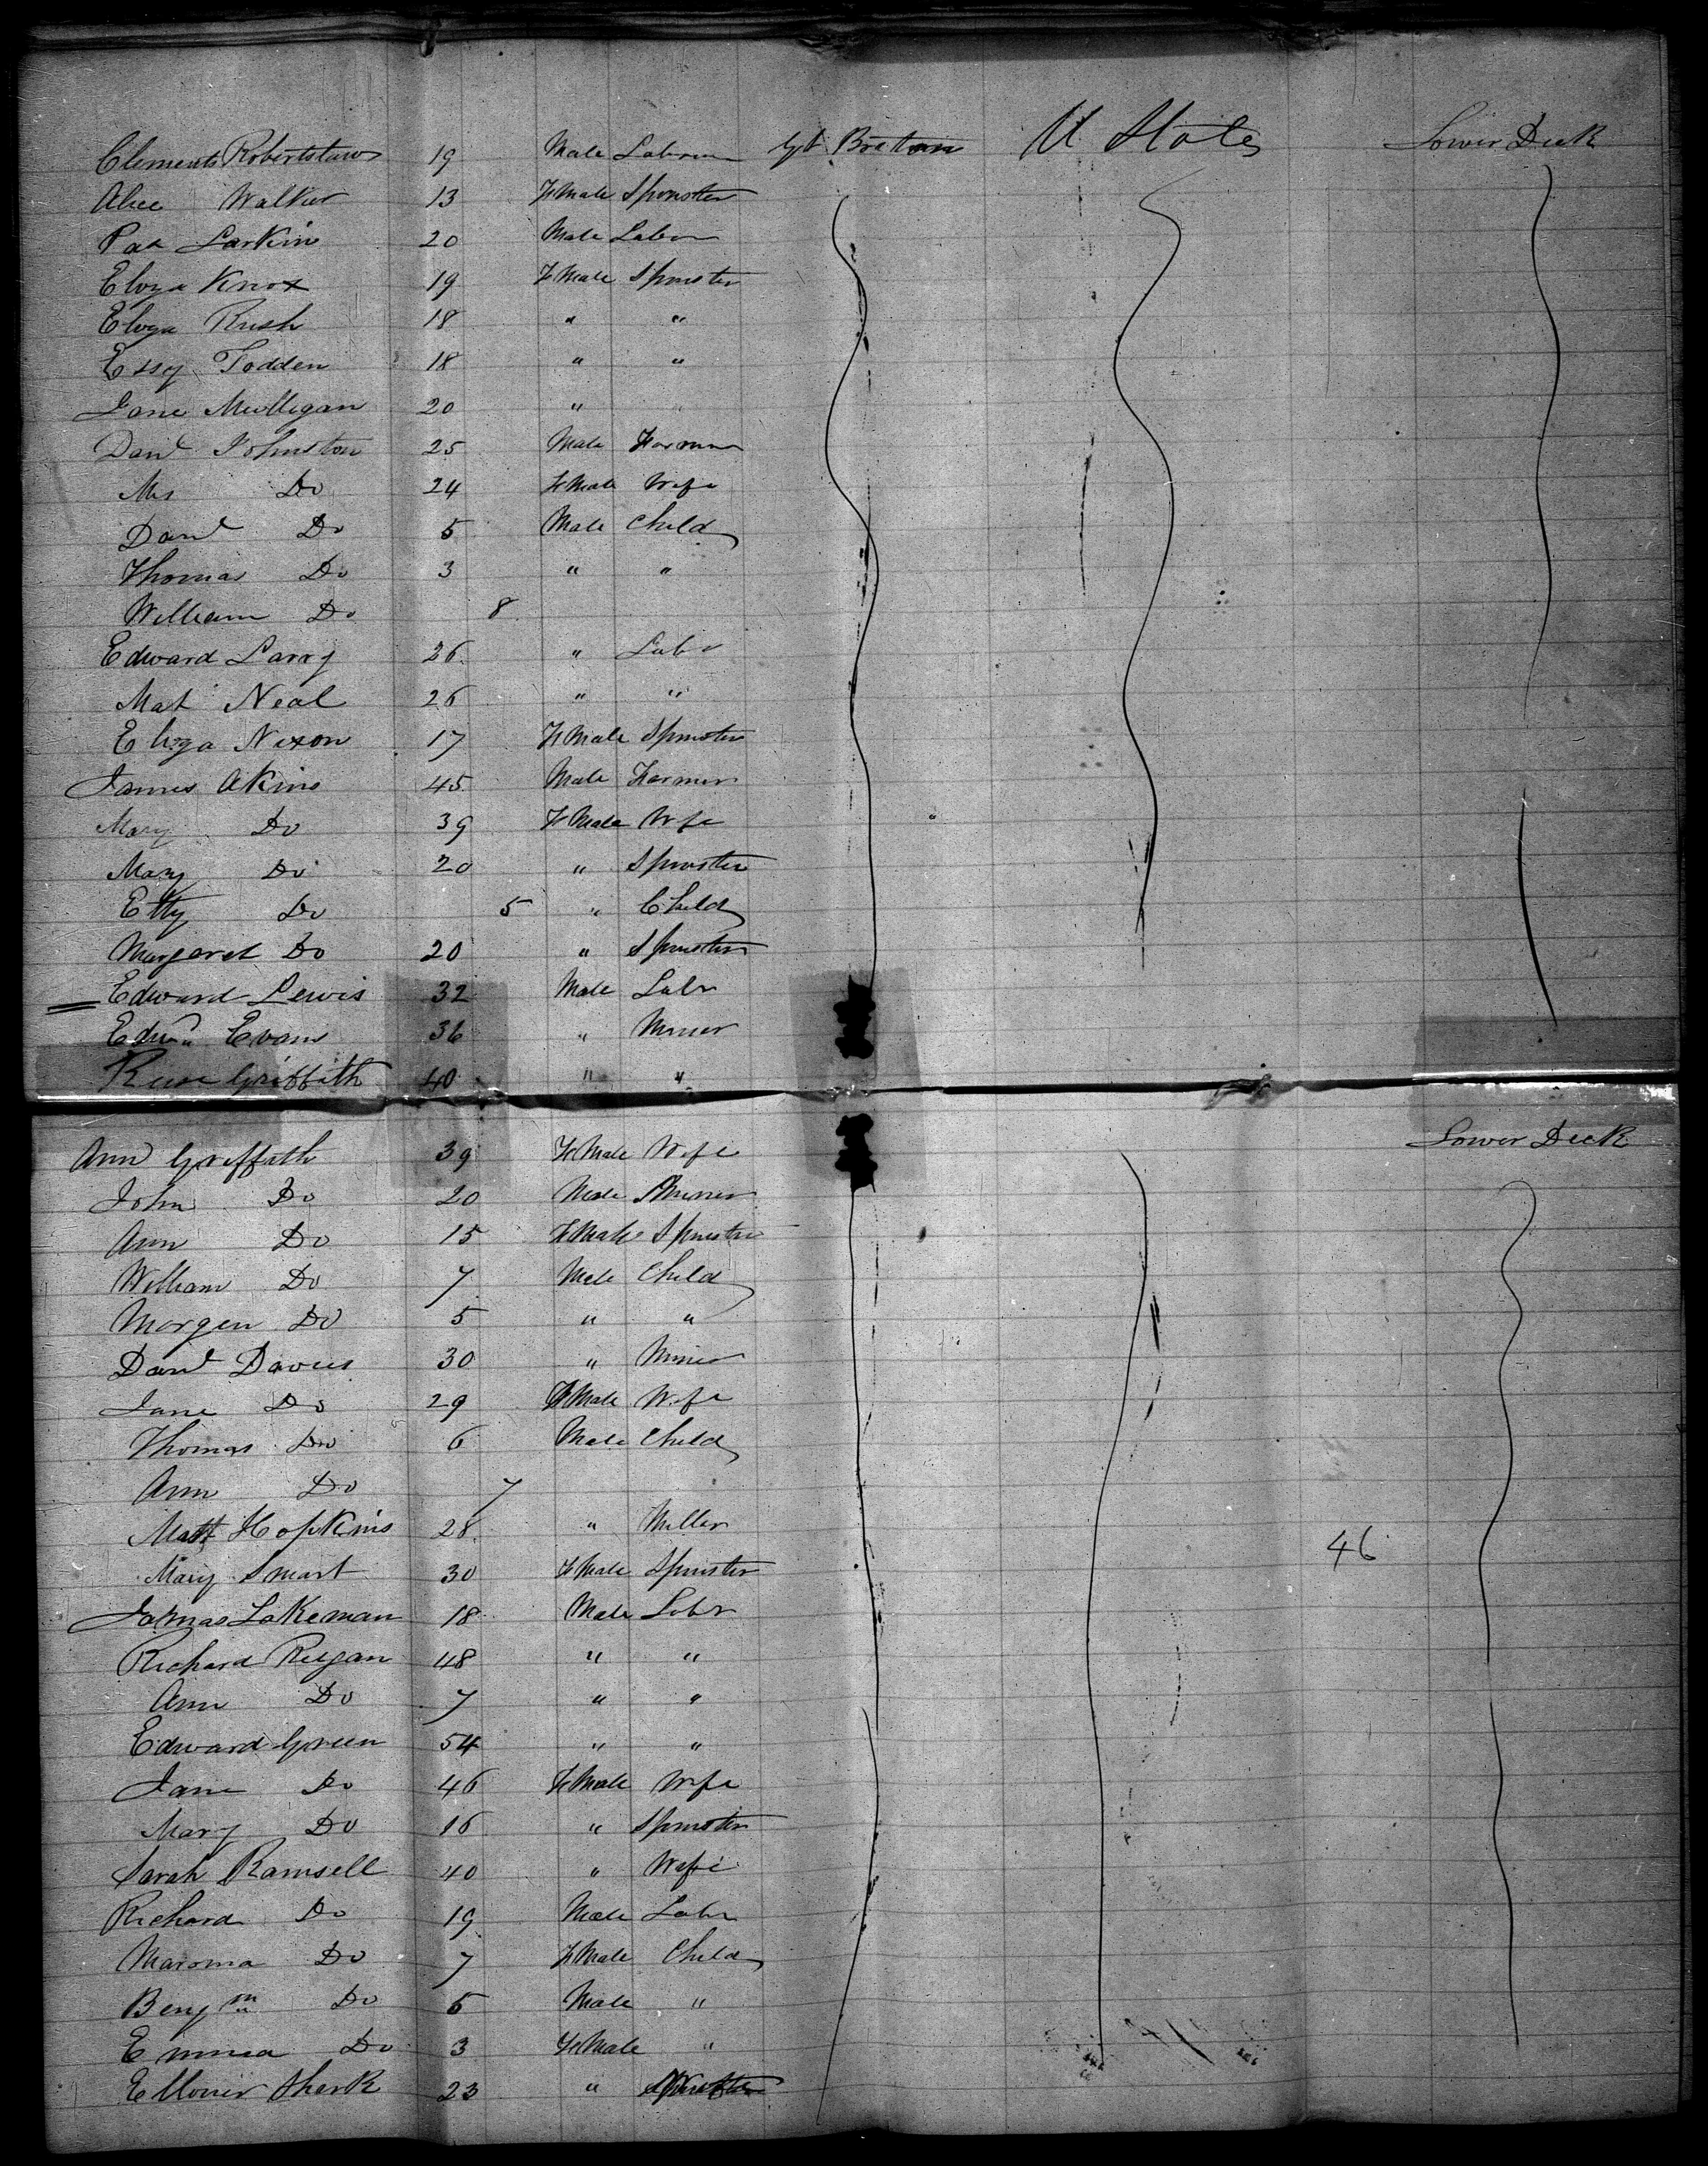 Clements Robertshaw 19 Male Laborer Gt Britain U States Lower Deck
Alice Walker 13 FeMale Spinster
Pat Larkin 20 Male Labor
Eliza Knox 19 FeMale Spinster
Eliza Rush 18 " "
Essy Fodden 18 " "
Jane Mulligan 20 "
Danl Johnston 25 Male Farmer
Mrs Do 24 FeMale Wife
Danl Do 5 Male Child
Thomas Do 3 " "
William Do 8
Edward Larry 26 " Labr
Mat Neal 26 " "
Eliza Nixon 17 FeMale Spinster
James Akins 45 Male Farmer
Mary Do 39 FeMale Wife
Mary Do 20 " Spinster
Etty Do 5 " Child
Margaret Do 20 " Spinster
Edward Lewis 32 Male Labr
Edwd Evans 36 " Miner
Reese Griffith 40 " "
Ann Griffith 39 FeMale Wife Lower Deck
John Do 20 Male Miner
Ann Do 15 FeMale Spinster
William Do 7 Male Child
Morgan Do 5 " "
Danl Davies 30 " Miner
Jane Do 29 FeMale Wife
Thomas Do 6 Male Child
Ann Do 7
Matt Hopkins 28 " Miller 46
Mary Smart 30 FeMale Spinster
James Lakeman 18 Male Labr
Richard Regan 48 " "
Ann Do 7 " "
Edward Green 54 " "
Jane Do 46 FeMale Wife
Mary Do 16 " Spinster
Sarah Ramsell 40 " Wife
Richard Do 19 Male Labr
Maroma Do 7 FeMale Child
Benjm Do 5 Male "
Emma Do 3 FeMale "
Ellonir Shark 23 " Spinster